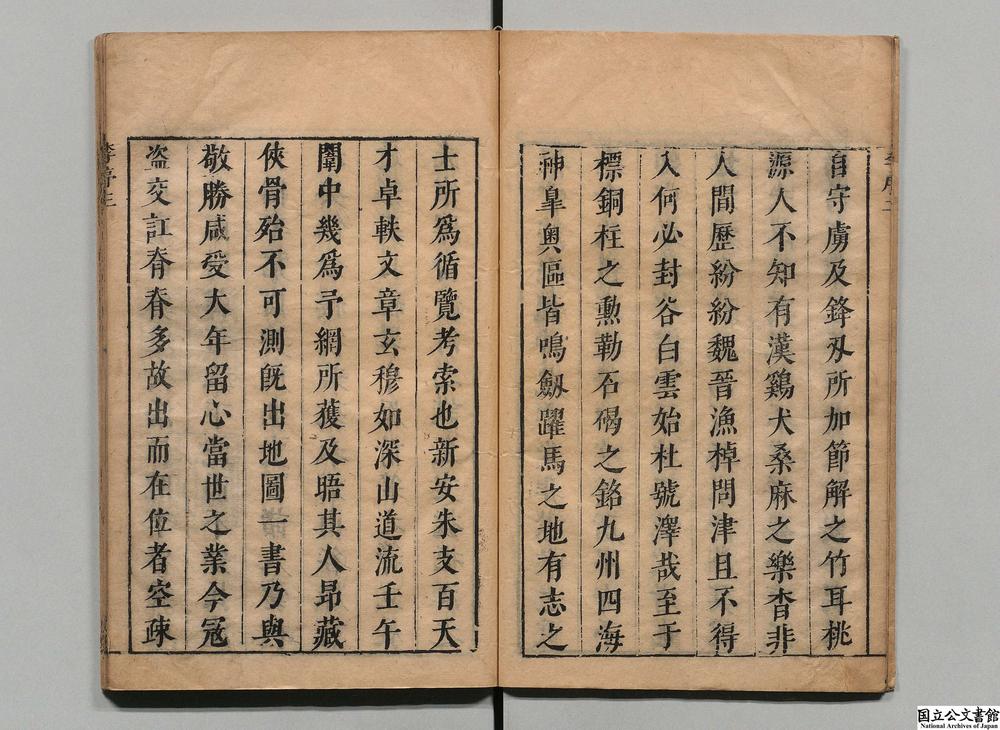 自守虜及鋒刃所加節解之竹耳桃
源人不知有漢鷄犬桑麻之樂杳非
人間歷紛紛魏晉漁棹問津且不得
入何必封谷白雲始杜號澤哉至于
標銅柱之勲勒石碣之銘九州四海
神臯奥區皆鳴劔躍馬之地有志之
士所爲循覽考索也新安朱支百天
才卓軼文章玄穆如深山道流壬午
闈中幾爲予網所獲及晤其人昻藏
俠骨殆不可測旣出地圖一書乃與
敬勝咸受大年留心當世之業今冦
盗交訌脊脊多故出而在位者空疎
国立公文書館
National Archives of Japan